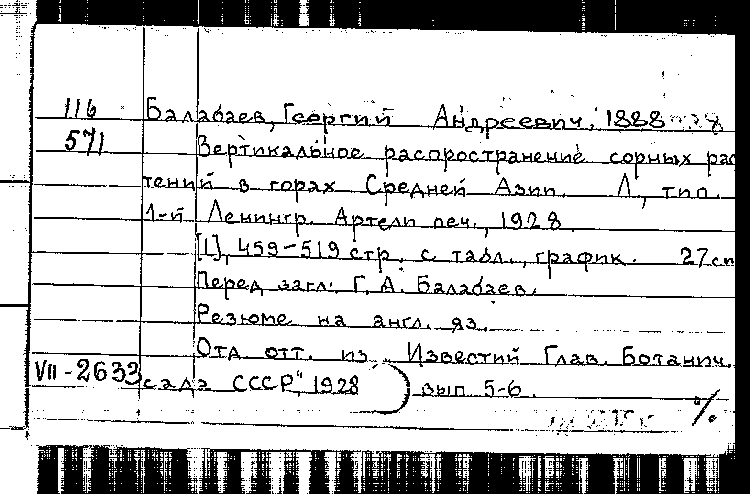 116 Балабаев, Георгий Андреевич, 1888
571 Вертикальное распространение сорных рас
тений в горах Средней Азии. Л., тип.
1-й Ленингр. Артели печ., 1928.
[1], 459-519 стр. с табл., график. 27 см
Перед загл.: Г. А. Балабаев.
Резюме на англ. яз.
Отд. отт. из „Известий Глав. Ботанич.
VII-2633 сада СССР," 1928) вып 5-6.
%